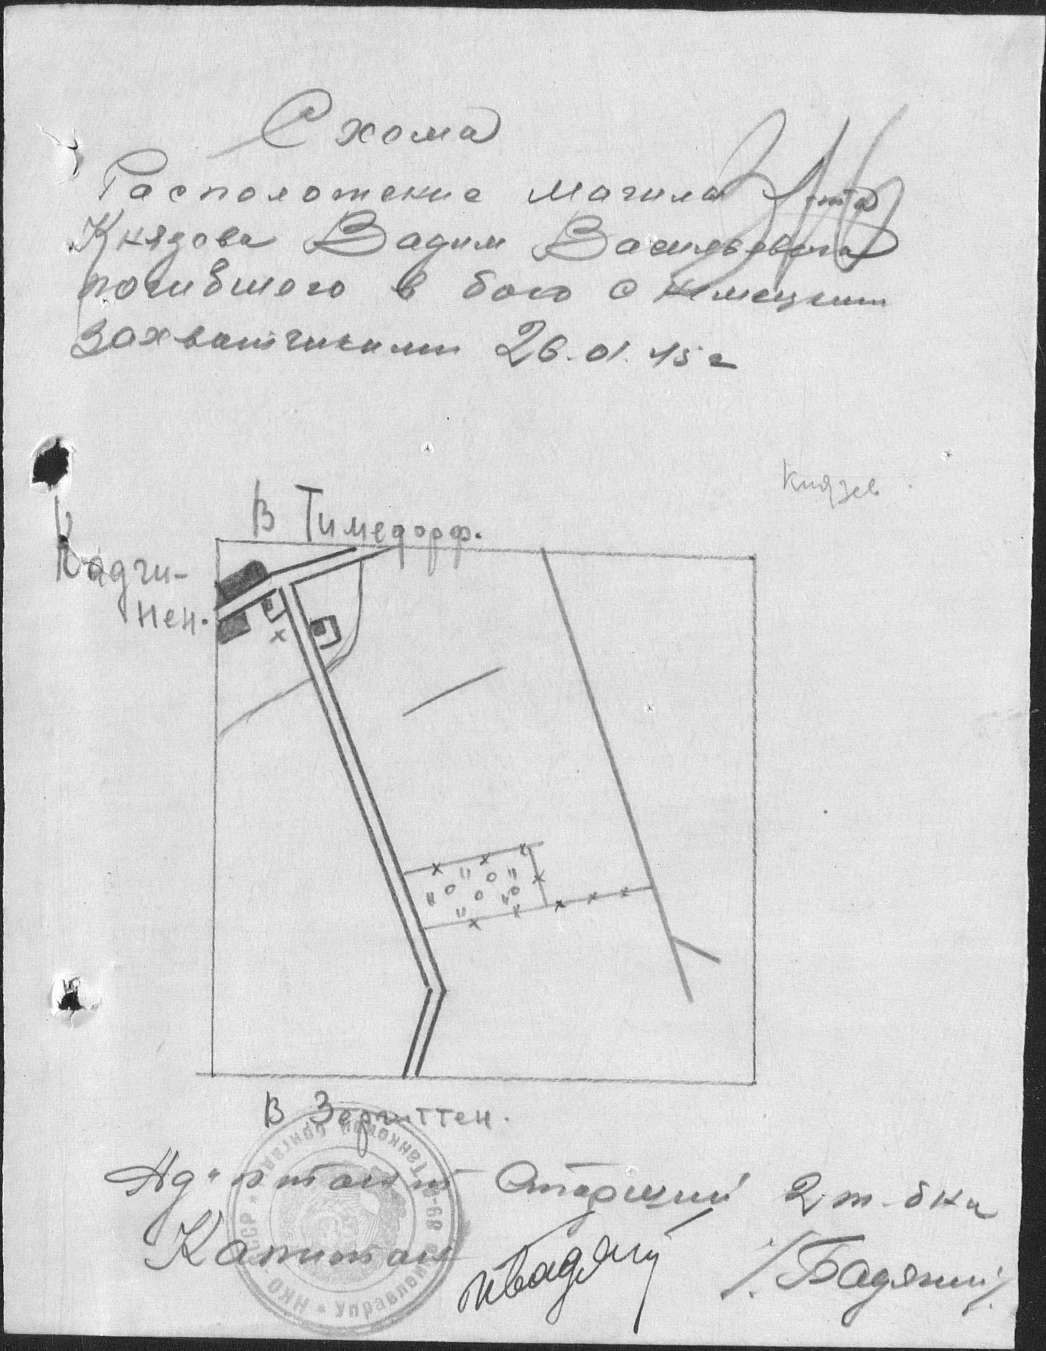 Схема
Расположение могила л-та
Князева Вадим Васильевича
погибшего в бою с немецким
захватчиками 26.01.45 г
Князев
В Тимсдорф.
Кадги-
нен.
В Зергиттен.
Ад"ютант Старший 2 т. б-на
Капитан
/Бадягин/
Управление * НКО СССР * танковой бригады * 89